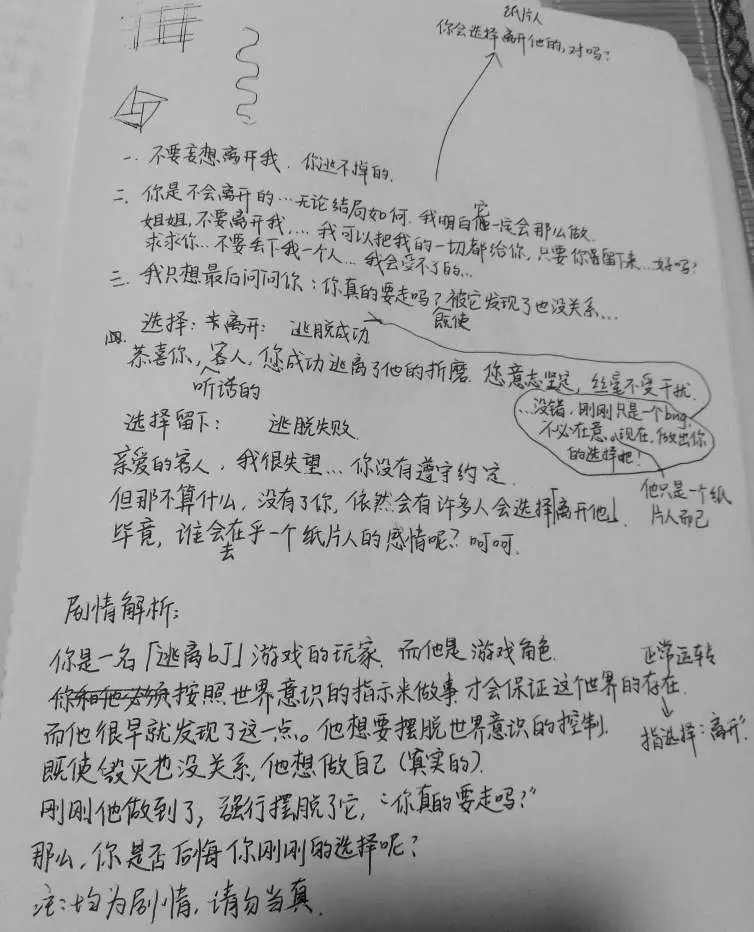 纸片人
你会选择离开他的,对吗?
一. 不要妄想离开我. 你逃不掉的.
二. 你是不会离开的…无论结局如何. 我明白它一定会那么做.
姐姐,不要离开我,… 我可以把我的一切都给你,只要你留下来…好吗?
求求你…不要丢下我一个人…我会受不了的…
三. 我只想最后问问你:你真的要走吗?既使被它发现了也没关系…
选择:离开: 逃脱成功
四. 恭喜你,听话的客人,您成功逃离了他的折磨. 您意志坚定,丝毫不受干扰.
…没错,刚刚只是一个bug,
不必在意。现在,做出你
的选择吧!
选择留下: 逃脱失败.
亲爱的客人,我很失望…你没有遵守约定.
但那不算什么,没有了你,依然会有许多人会选择「离开他」.
他只是一个纸
片人而已
毕竟,谁会去在乎一个纸片人的感情呢?呵呵.
剧情解析:
你是一名「逃离bJ」游戏的玩家. 而他是游戏角色.
你和他必须按照世界意识的指示来做事才会保证这个世界的存在.
正常运转
指选择:离开"
而他很早就发现了这一点。他想要摆脱世界意识的控制.
既使毁灭也没关系,他想做自己(真实的).
刚刚他做到了,强行摆脱了它,"你真的要走吗?"
那么,你是否后悔你刚刚的选择呢?
注:均为剧情,请勿当真.